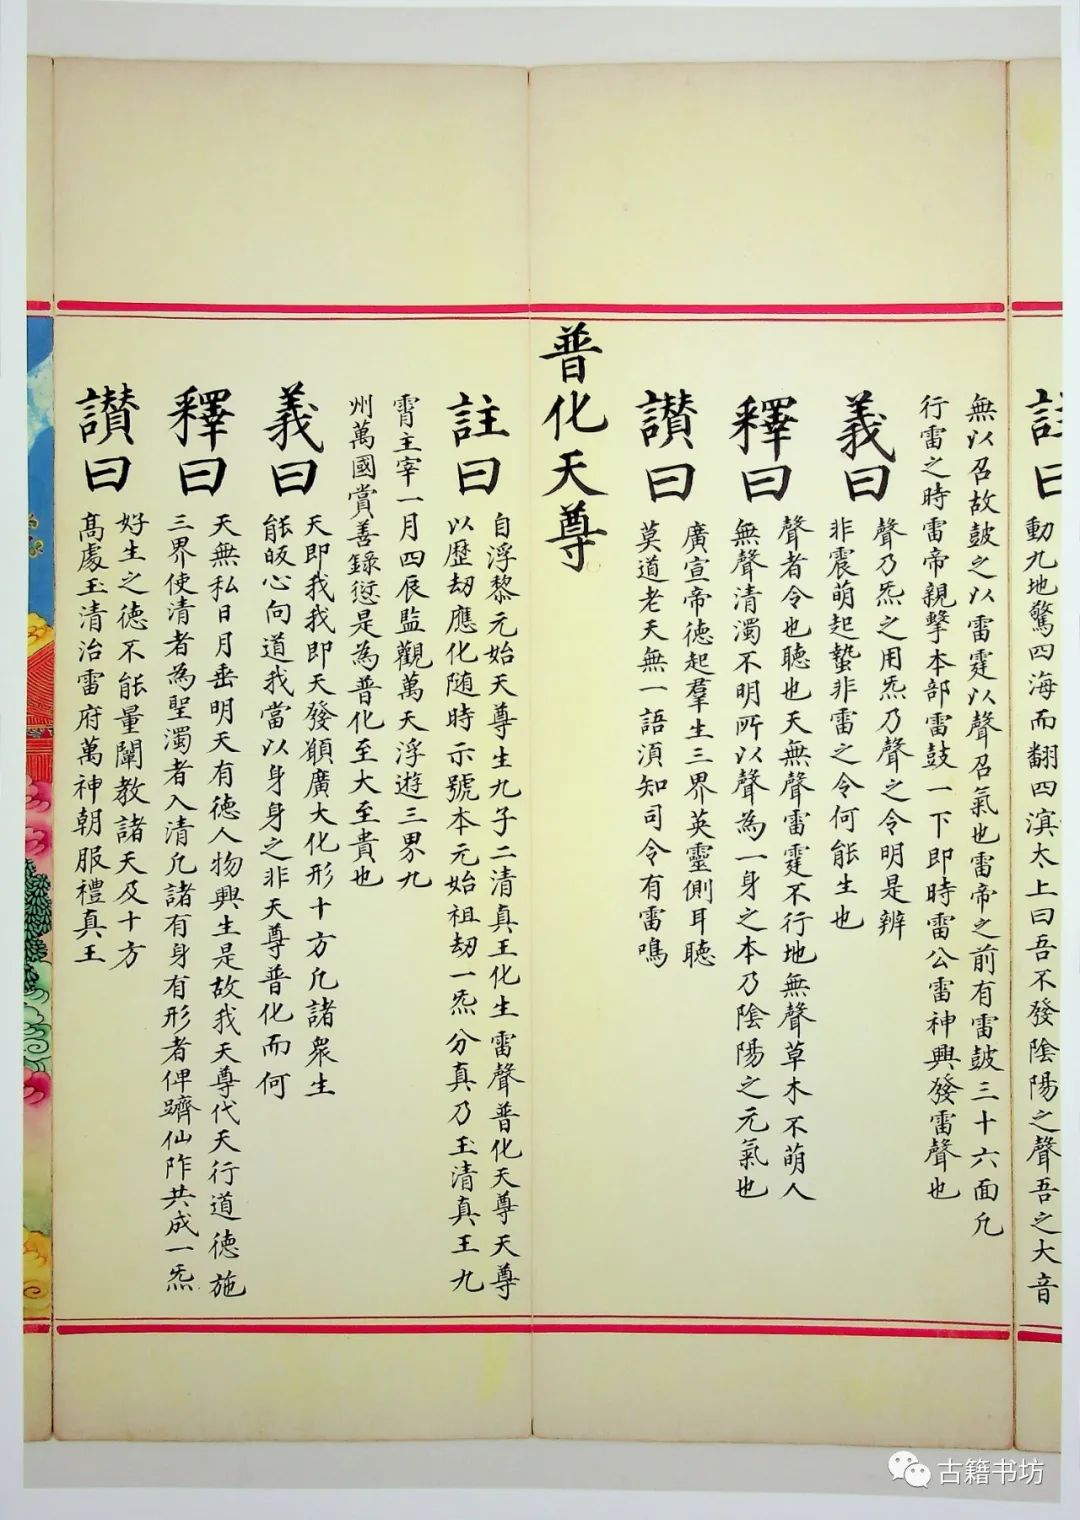 註曰
動九地驚四海而翻四溟太上曰吾不發陰陽之聲吾之大音
無以召故鼓之以雷霆以聲召氣也雷帝之前有雷鼓三十六面凢
行雷之時雷帝親擊本部雷鼓一下即時雷公雷神興發雷聲也
義曰
聲乃炁之用炁乃聲之令明是辨
非震萌起蟄非雷之令何能生也
釋曰
聲者令也聽也天無聲雷霆不行地無聲草木不萌人
無聲清濁不明所以聲為一身之本乃陰陽之元氣也
讃曰
廣宣帝德起羣生三界英靈側耳聽
莫道老天無一語湏知司令有雷鳴
普化天尊
註曰
自浮黎元始天尊生九子二清真王化生雷聲普化天尊天尊
以歷刼應化随時示號本元始祖刼一炁分真乃玉清真王九
霄主宰一月四辰監觀萬天浮遊三界九
州萬國賞善錄愆是為普化至大至貴也
義曰
天即我我即天發願廣大化形十方凢諸衆生
能皈心向道我當以身身之非天尊普化而何
釋曰
天無私日月垂明天有德人物興生是故我天尊代天行道德施
三界使清者為聖濁者入清凢諸有身有形者俾躋仙阼共成一炁
讃曰
好生之德不能量闡教諸天及十方
髙處玉清治雷府萬神朝服禮真王
古籍书坊